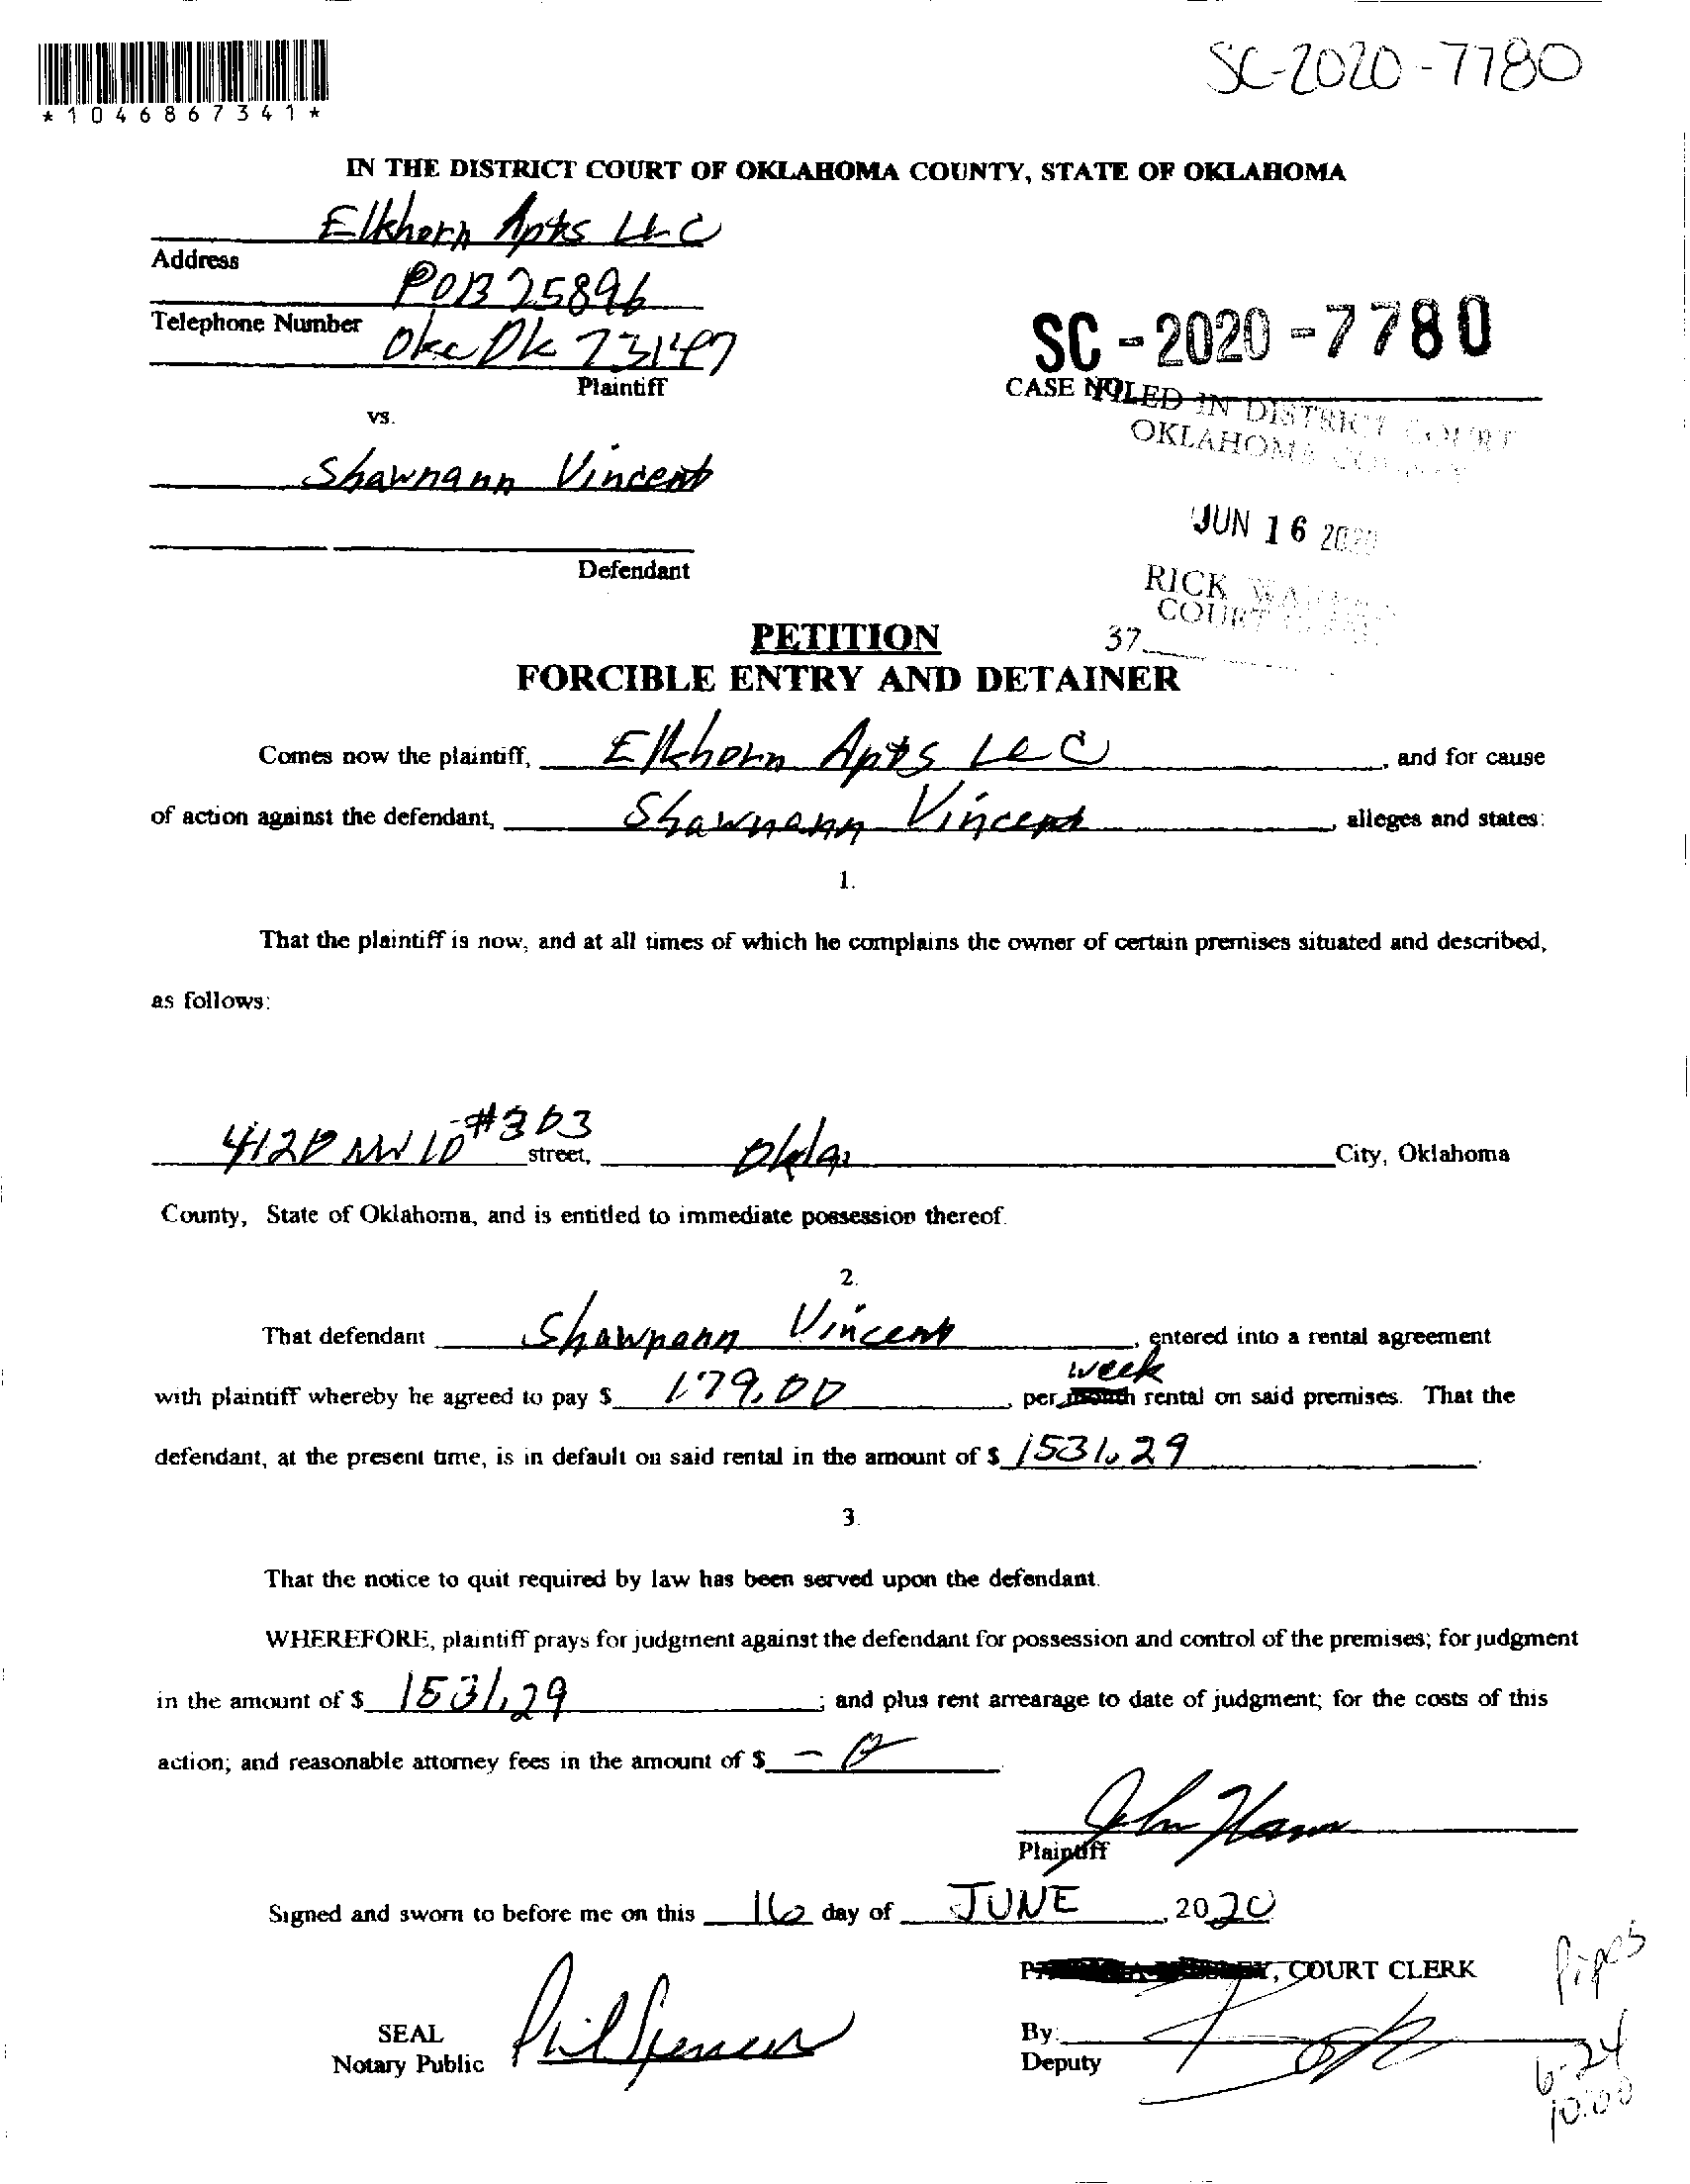 SC-2020-7780
*1046867341*
IN THE DISTRICT COURT OF OKLAHOMA COUNTY, STATE OF OKLAHOMA
Elkhorn Apts LLC
Address
POB 25896
Telephone Number
Okc Ok 73147
Plaintiff
SC-2020-7780
CASE NO.
FILED IN DISTRICT COURT
OKLAHOMA COUNTY
vs.
Shawnann Vincent
JUN 16 2020
Defendant
RICK WARREN
COURT CLERK
37
PETITION
FORCIBLE ENTRY AND DETAINER
Comes now the plaintiff, Elkhorn Apts LLC, and for cause
of action against the defendant, Shawnann Vincent, alleges and states:
1.
That the plaintiff is now, and at all times of which he complains the owner of certain premises situated and described,
as follows:
4120 NW 10 #303 street, Okla. City, Oklahoma
County, State of Oklahoma, and is entitled to immediate possession thereof.
2.
That defendant Shawnann Vincent, entered into a rental agreement
week
with plaintiff whereby he agreed to pay $ 179.00, per month rental on said premises. That the
defendant, at the present time, is in default on said rental in the amount of $ 1531.29.
3.
That the notice to quit required by law has been served upon the defendant.
WHEREFORE, plaintiff prays for judgment against the defendant for possession and control of the premises; for judgment
in the amount of $ 1531.29; and plus rent arrearage to date of judgment; for the costs of this
action; and reasonable attorney fees in the amount of $ - 0.
John Hann
Plaintiff
Signed and sworn to before me on this 16 day of JUNE, 2020
, COURT CLERK
Pipes
SEAL
Notary Public
Phil Spencer
By:
Deputy
6-24
10:00